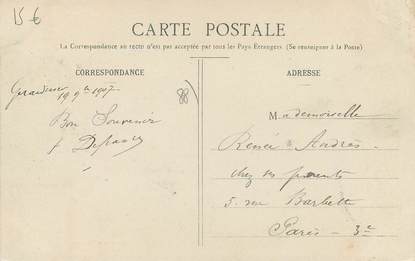 15 €
CARTE POSTALE
La Correspondance au recto n'est pas acceptée par tous les Pays Étrangers (Se renseigner à la Poste)
CORRESPONDANCE
ADRESSE
Gérardmer
19 9bre 1907
Bon Souvenir
Mademoiselle
Renée Andrès
chez ses parents
5 rue Barbette
Paris - 3e